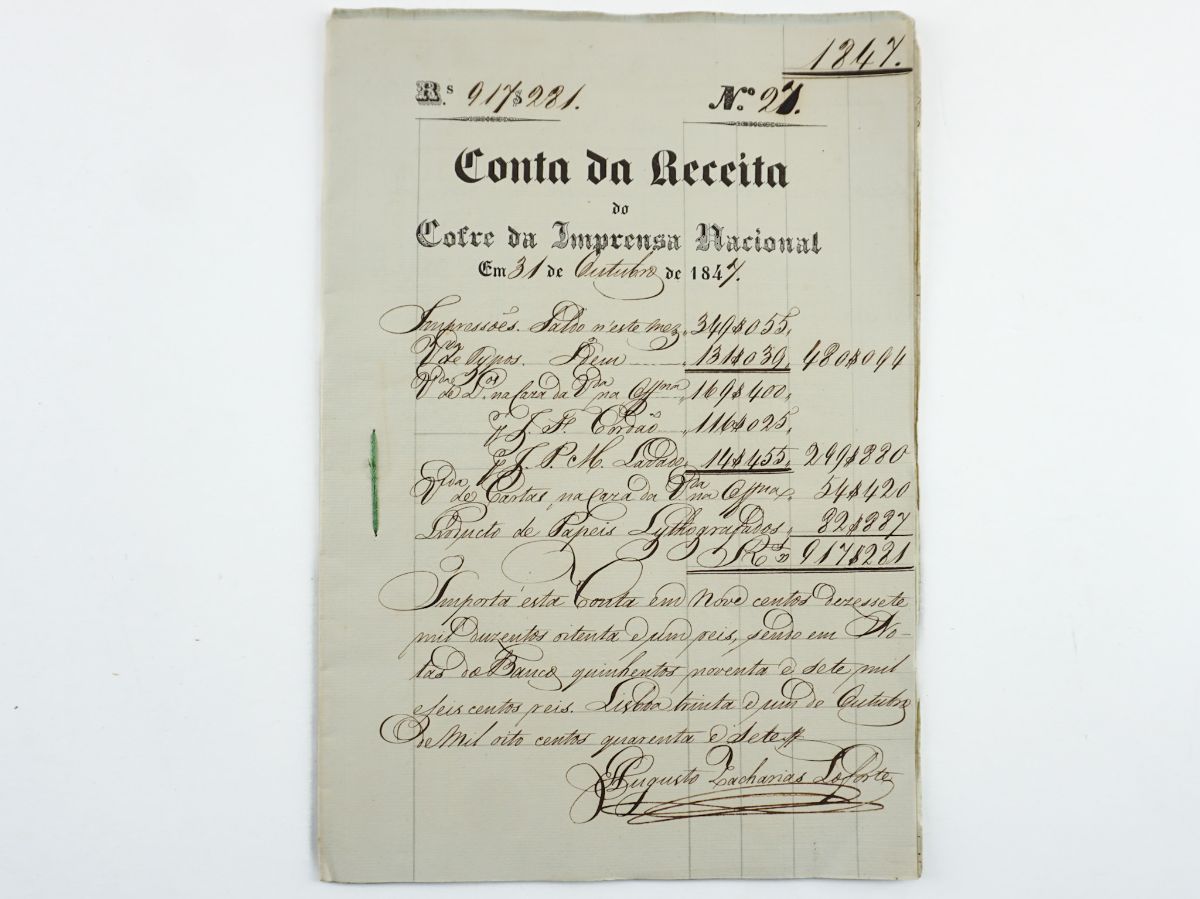 1847.
R.s 917$281. N.o 27.
Conta da Receita
do
Cofre da Imprensa Nacional
Em 31 de Outubro de 1847.
Impressões. Saldo n'este mez 349$055
Vda de Typos. Idem 131$039 480$094
Vda de L.os na Caza da Vda na Offna 169$400
pr J. F. Cordão 116$025
pr J. P. M. Lavado 14$455 299$880
Vda de Cartas, na Caza da Vda na Offna 54$420
Producto de Papeis Lythografados 82$887
Rs 917$281
Importa esta Conta em nove centos dezessete
mil duzentos oitenta e um reis, sendo em No-
tas do Banco quinhentos noventa e sete mil
e seis centos reis. Lisboa trinta e um de Outubro
de Mil oito centos quarenta e sete
Augusto Zacharias Loforte